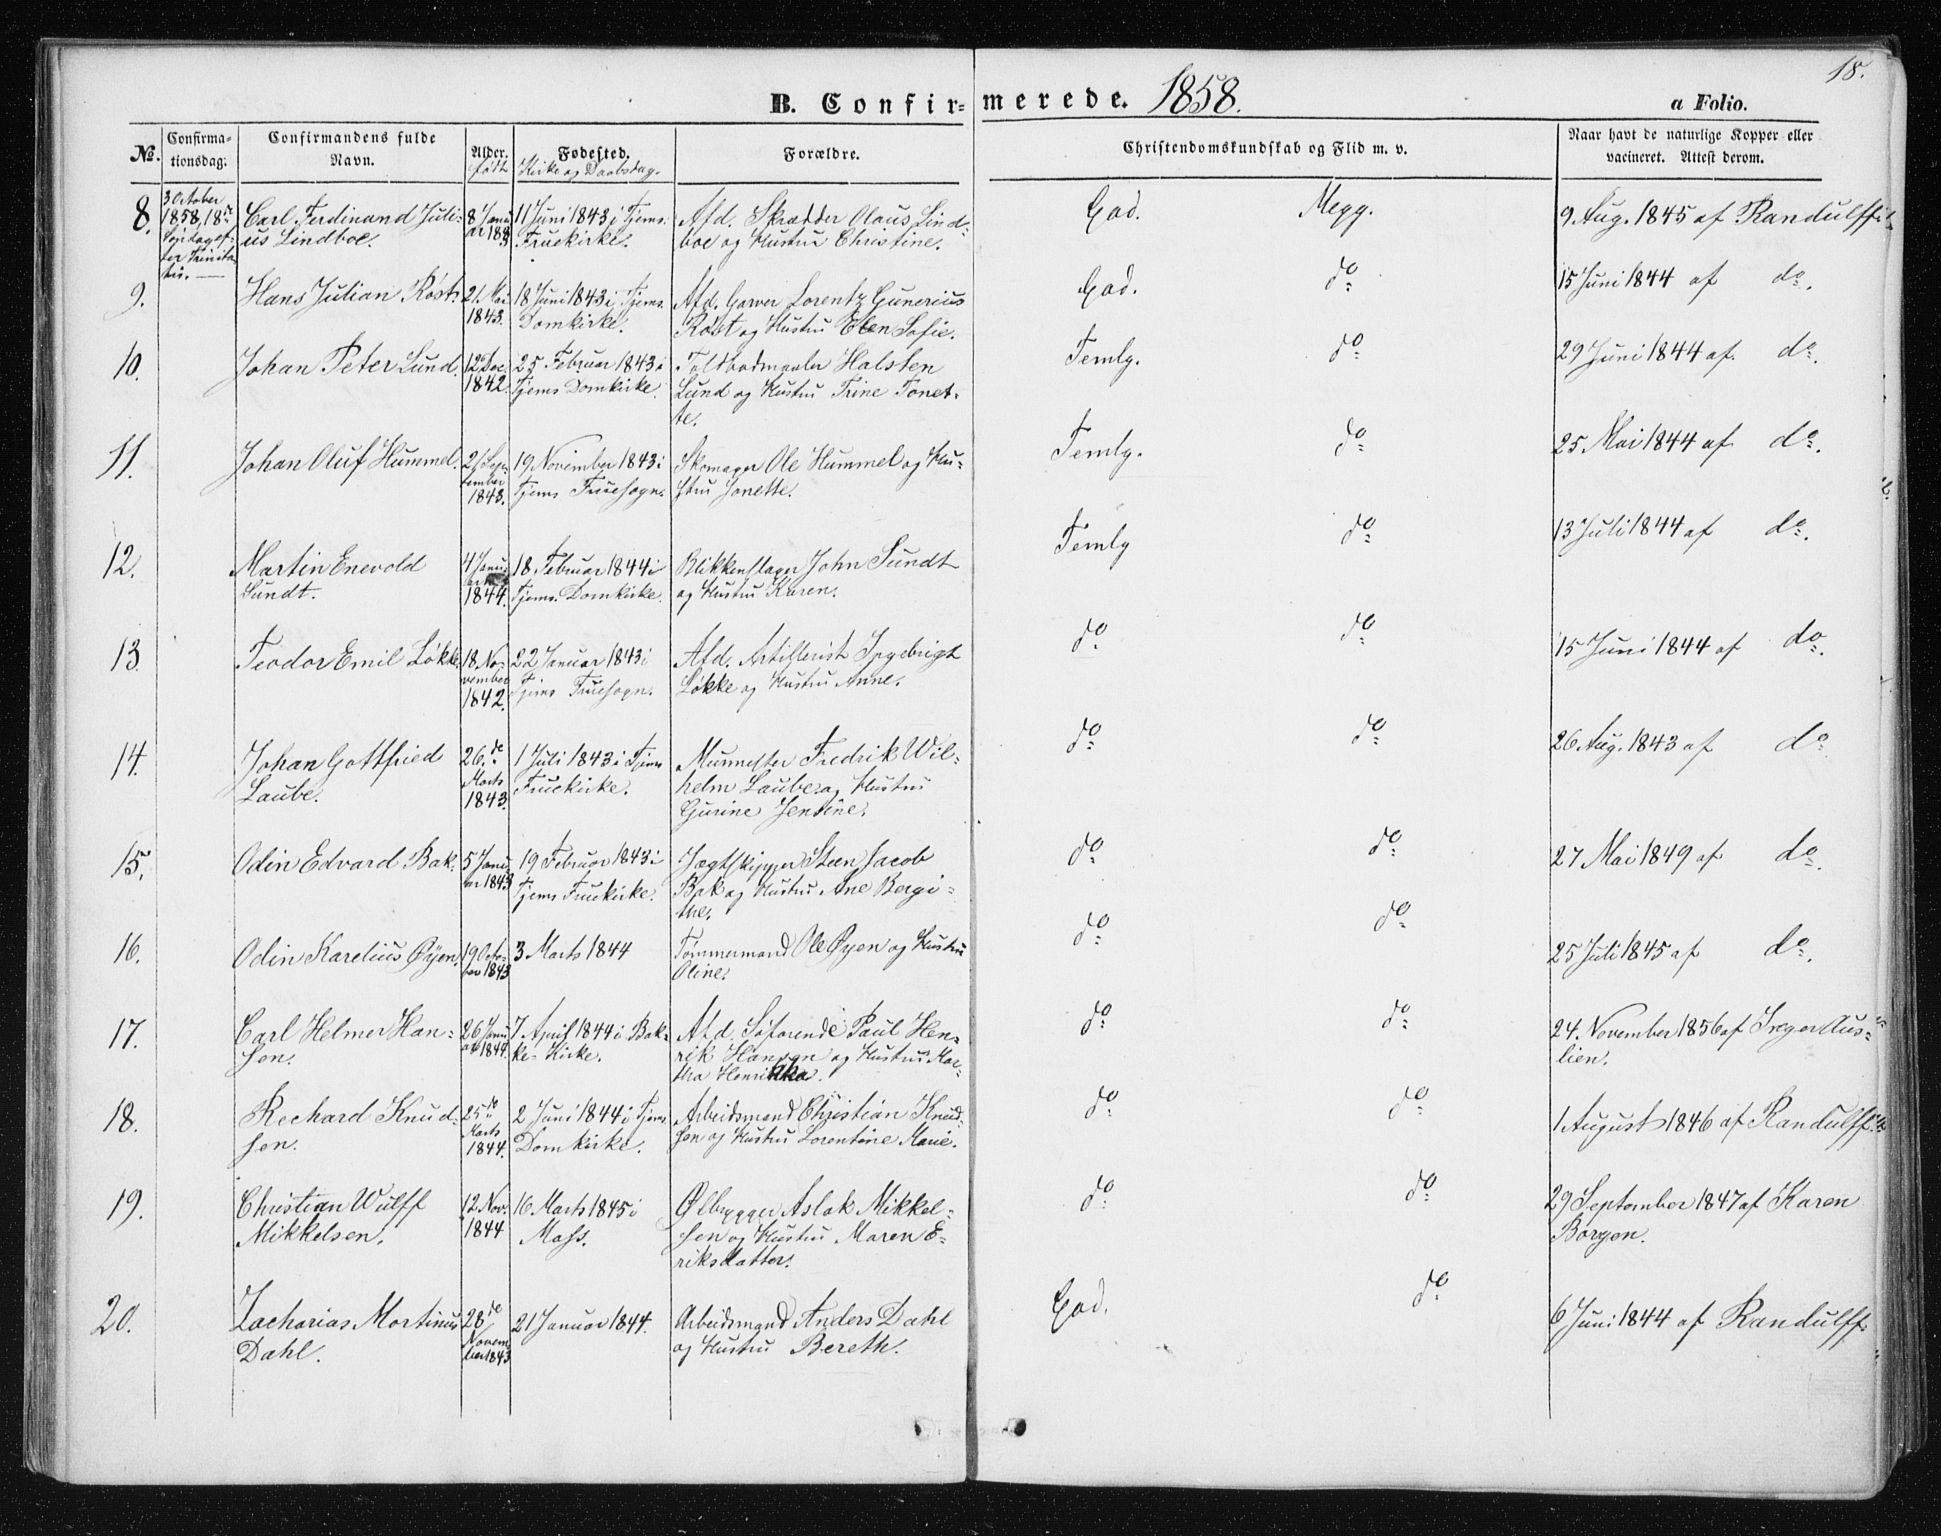 18.
B. Confir- merede. 1858. a Folio.
No. Confirma- Confirmandens fulde Alder. Fødested. Forældre. Christendomskundskab og Flid m. v. Naar havt de naturlige Kopper eller
tionsdag. Navn. født Kirke og Daabsdag. vacineret. Attest derom.
8. 3 October
1858, 18de
Søndag ef-
ter Trinita-
tis.
Carl Ferdinand Juli-
us Lindboe.
8 Janu
ar 1843
11 Juni 1843 i Tjems.
Fruekirke.
Afd. Skrædder Olaus Lind-
boe og Hustru Christine.
God. Megg. 9 Aug. 1845 af Randulff.
9. Hans Julian Röst. 21. Mai
1843.
18 Juni 1843 i Tjems.
Domkirke.
Afd. Garver Lorentz Gunerius
Röst og Hustru Elen Sofie.
God. do 15 Juni 1844 af do.
10. Johan Peter Lund. 12 Dec.
1842.
25 Februar 1843 i
Tjems Domkirke.
Toldbodmaaler Halsten
Lund og Hustru Trine Tonet-
te.
Temlg. do 29 Juni 1844 af do.
11. Johan Oluf Hummel. 21 Sep-
tember
1843.
19 November 1843 i
Tjems Fruesogn.
Skomager Ole Hummel og Hu-
stru Jonette.
Temlg. do 25 Mai 1844 af do.
12. Martin Enevold
Sundt.
4 Janu-
ar
1844.
18. Februar 1844 i
Tjems. Domkirke.
Blikkenslager John Sundt
og Hustru Karen.
Temlg do 13 Juli 1844 af do.
13. Teodor Emil Løkke 18. No-
vember
1842.
22 Januar 1843 i
Tjems Fruesogn.
Afd. Artillerist Ingebrigt
Løkke og Hustru Anne.
do do 15 Juni 1844 af do.
14. Johan Gottfried
Laube.
26.de
Marts
1843.
1 Juli 1843 i Tjems
Fruekirke.
Murmester Fredrik Wil-
helm Laube og Hustru
Gurine Jensine.
do do 26 Aug. 1843 af do
15. Odin Edvard Bak. 5 Janu
ar 1843
19 Februar 1843 i
Tjems Fruekirke.
Jægtskipper Steen Jacob
Bak og Hustru Ane Bergi-
the.
do do 27 Mai 1849 af do.
16. Odin Karelius Øyen. 19 Octo-
ber 1843
3 Marts 1844
Tømmermand Ole Øyen og Hustru
Oline.
do do 25 Juli 1845 af do.
17. Carl Helmer Han-
sen.
26 Janu
ar 1844.
7 April 1844 i Bak-
ke- Kirke.
Afd. Søfarende Paul Hen-
rik Hansen og Hustru Mar-
tha Henrikka.
do do 24. November 1856 af Aus-
lien.
18. Rechard Knud-
sen.
25 de
Marts
1844.
2 Juni 1844 i Tjems
Domkirke.
Arbeidsmand Christian Knud-
sen og Hustru Lorentine Marie.
do do 1 August 1846 af Randulff.
19. Christian Wulff
Mikkelsen.
12. Nov.
1844
16. Marts 1845 i
Moss.
Ølbrygger Aslak Mikkel-
sen og Hustru Maren E-
riksdatter.
do do 29 September 1847 af Karen
Borgen.
20. Zacharias Martinus
Dahl.
28 de
Novem
ber 1843
21 Januar 1844.
Arbeidsmand Anders Dahl
og Hustru Bereth.
God. do 6 Juni 1844 af Randulff.